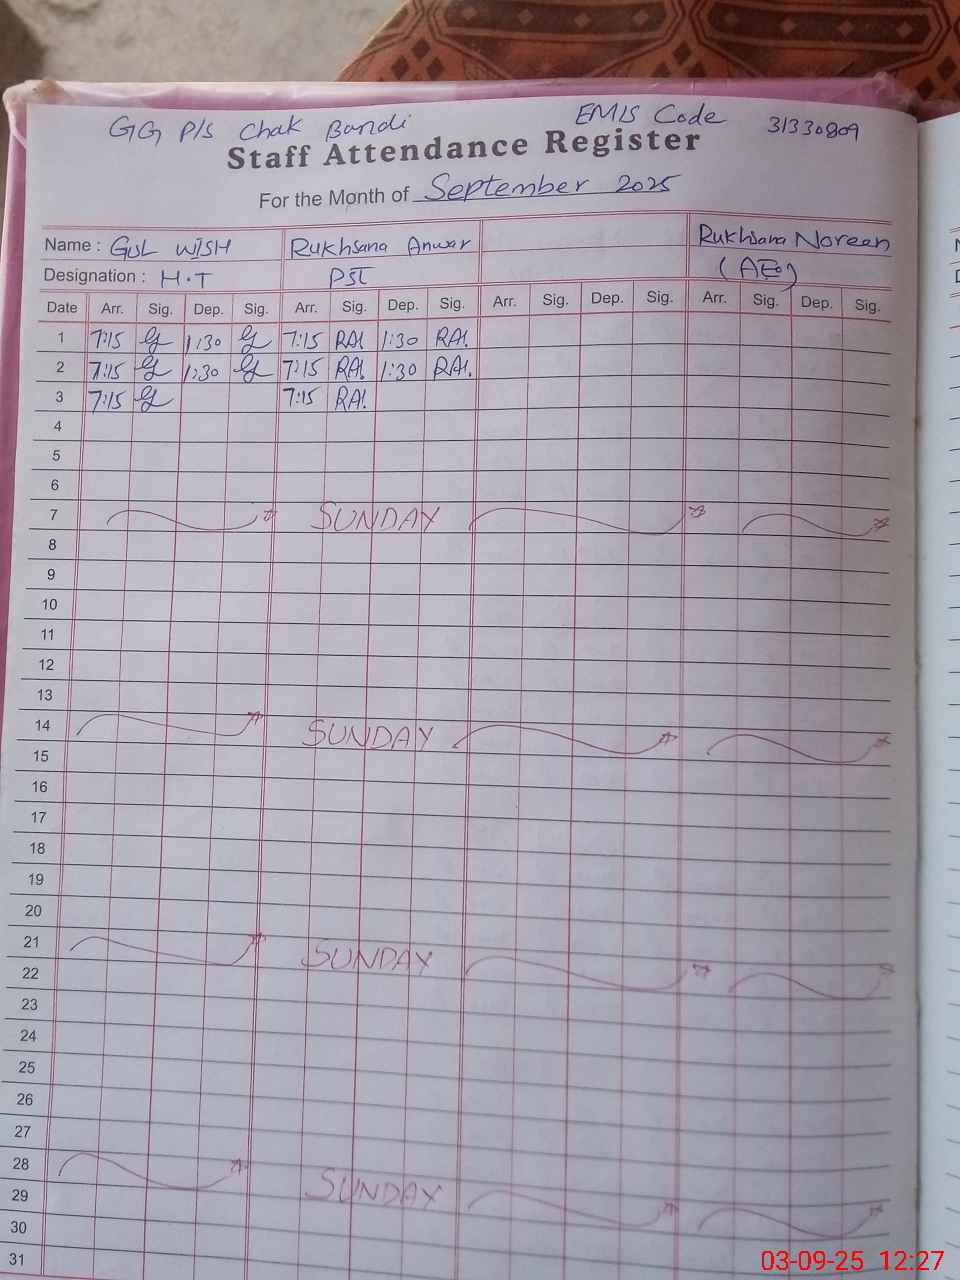 GG P/S Chak Bandi EMIS Code 31330809
Staff Attendance Register
For the Month of September 2025
Name : GUL WISH Rukhsana Anwar Rukhsana Noreen
Designation : H.T PST (AEO)
Date Arr. Sig. Dep. Sig. Arr. Sig. Dep. Sig. Arr. Sig. Dep. Sig. Arr. Sig. Dep. Sig.
1 7:15 1:30 7:15 RA. 1:30 RA.
2 7:15 1:30 7:15 RA. 1:30 RA.
3 7:15 7:15 RA.
4
5
6
7 SUNDAY
8
9
10
11
12
13
14 SUNDAY
15
16
17
18
19
20
21 SUNDAY
22
23
24
25
26
27
28 SUNDAY
29
30
31
03-09-25 12:27